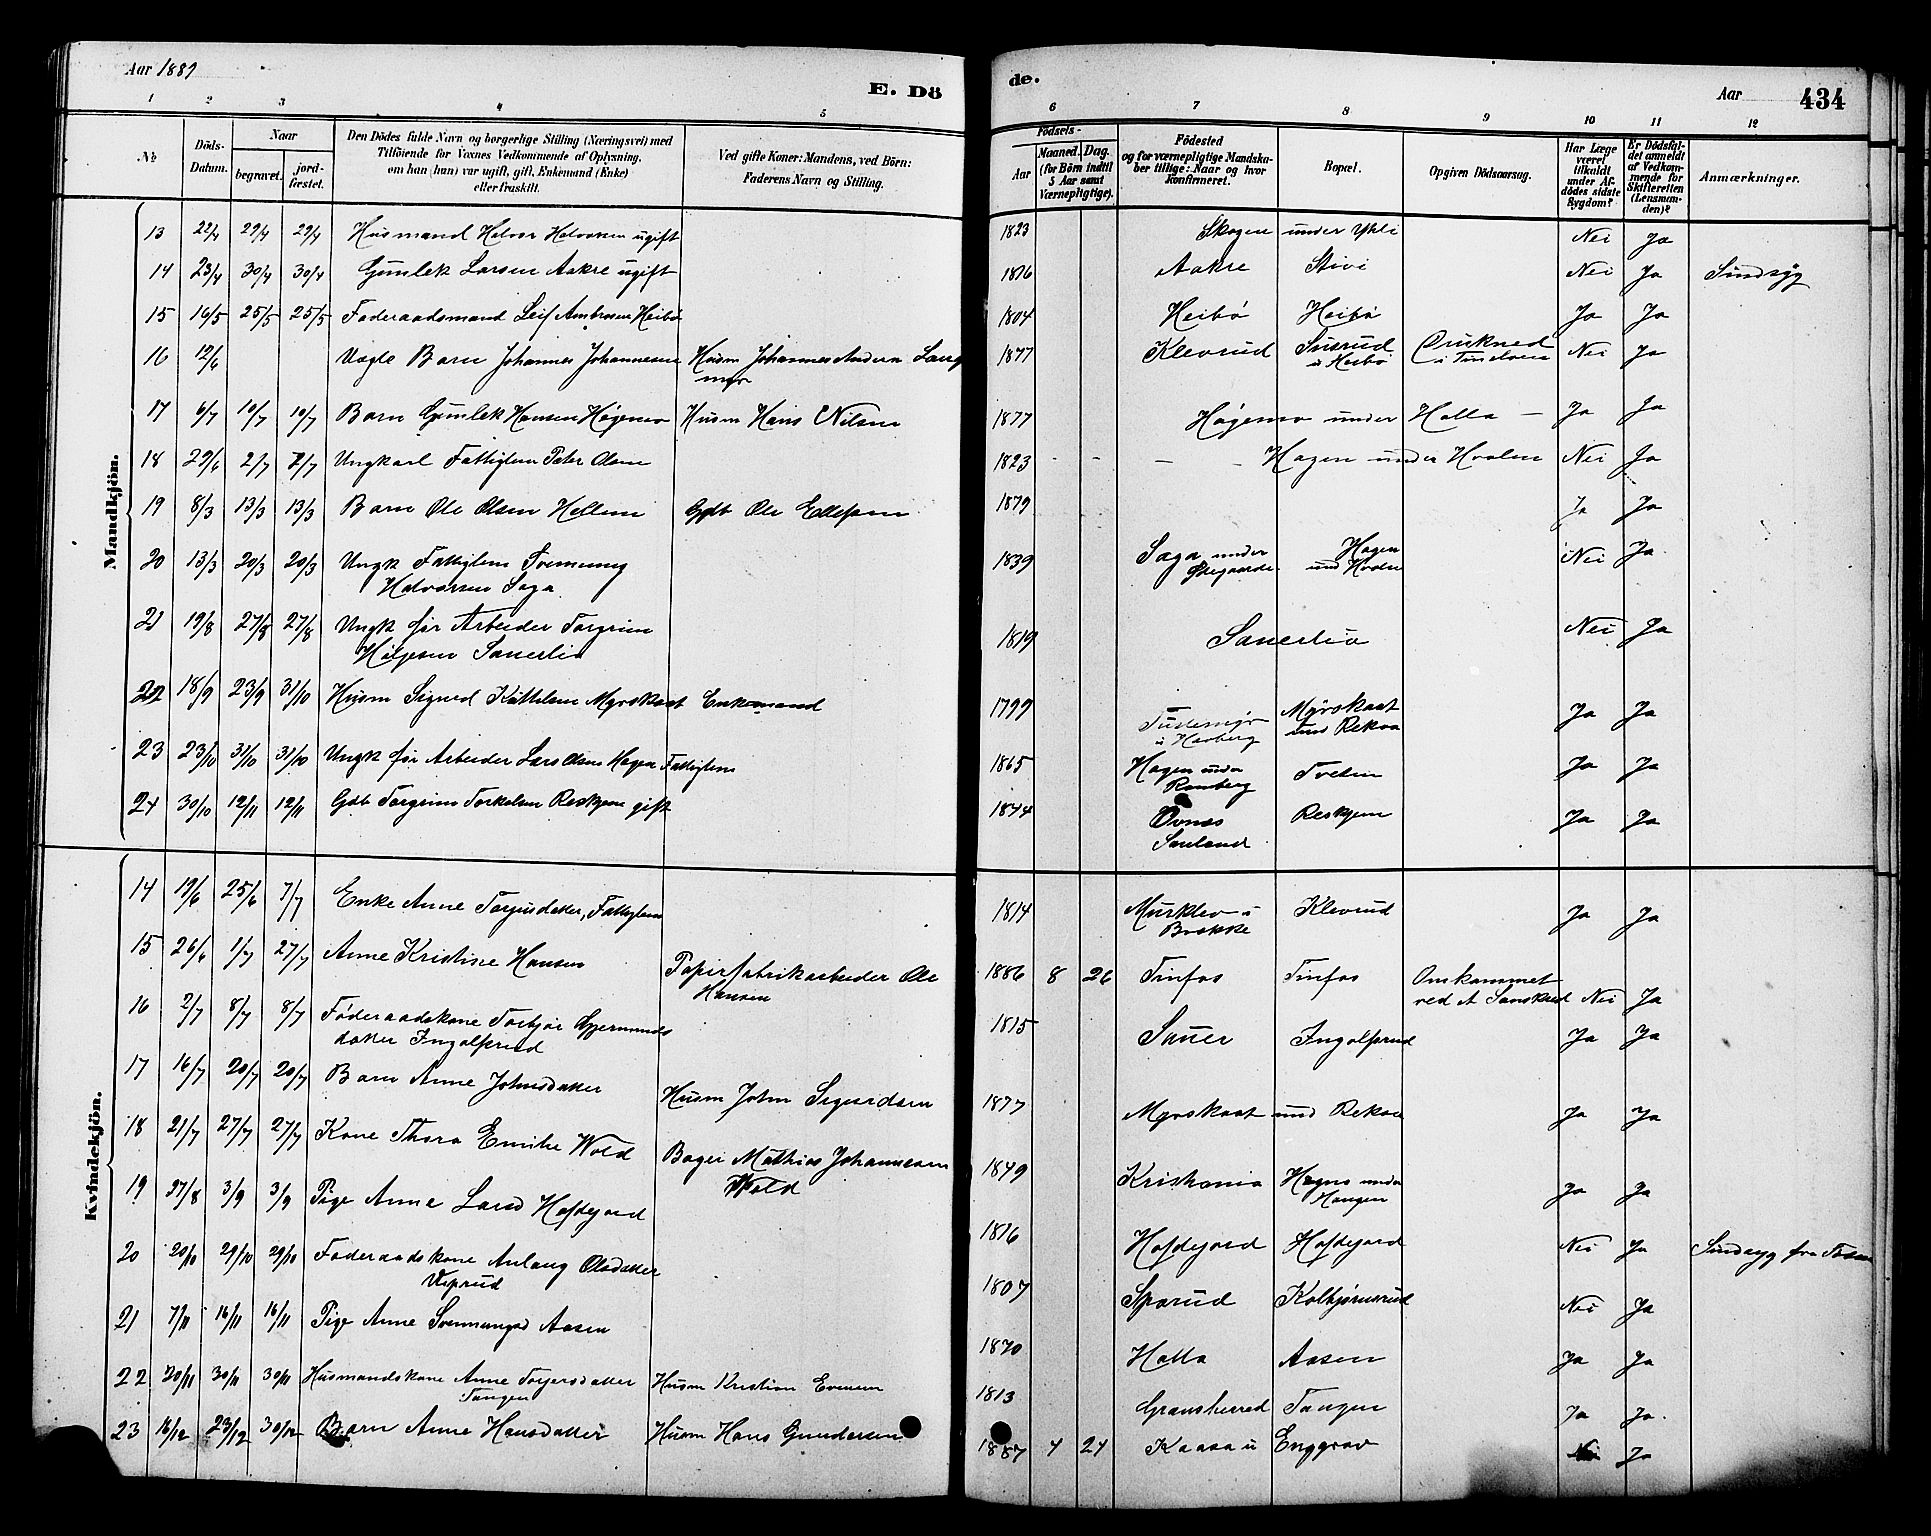 Aar 1887
E. Dö
de.
Aar
434
1 2 3 4 5 6 7 8 9 10 11 12
No
Döds-Datum.
Naar
begravet.
jord-fæstet.
Den Dödes fulde Navn og borgerlige Stilling (Næringsvei) med
Tilföiende for Voxnes Vedkommende af Oplysning,
om han (hun) var ugift, gift, Enkemand (Enke)
eller fraskilt.
Ved gifte Koner: Mandens, ved Börn:
Faderens Navn og Stilling.
Födsels-
Aar
Maaned. Dag.
(for Börn indtil
5 Aar samt
Værnepligtige).
Födested
og for værnepligtige Mandska-
ber tillige: Naar og hvor
Konfirmeret.
Bopæl.
Opgiven Dödsaarsag.
Har Læge
været
tilkaldt
under Af-
dödes sidste
Sygdom?
Er Dödsfal-
det anmeldt
af Vedkom-
mende for
Skifteretten
(Lensman-
den)?
Anmærkninger.
Mandkjön.
13 22/4 29/4 29/4 Husmand Halvor Halvorsen ugift 1823 Skogen under Yhli Nei Ja
14 23/4 30/4 30/4 Gunlek Larsen Aakre ugift 1816 Aakre Stivi Nei Ja Sindsyg
15 16/5 25/5 25/5 Föderaadsmand Leif Ambrosen Heibø 1804 Heibø Heibø Ja Ja
16 12/6 Uægte Barn Johannes Johannesen Husm Johannes Andersn Lang 1877 Klevrud Nei Ja
myr u Heibø i Tinelven
17 6/7 10/7 10/7 Barn Gunlek Hansen Høgemo Husm Hans Nilsen 1877 Høgemo under Holla — Ja Ja
18 29/6 2/7 2/7 Ungkarl Fattiglem Peter Olsen 1823 Hagen under Hvalen Nei Ja
19 8/3 13/3 13/3 Barn Ole Olsen Hellem Gdb Ole Ellefsen 1879 Ja Ja
20 13/3 20/3 20/3 Ungk Fattiglem Svennung 1839 Saga under Hagen Nei Ja
Halvorsen Saga
21 19/8 27/8 27/8 Ungk før Arbeider Torgrim 1819 Sauerlia Nei Ja
Høljesen Sauerlia
22 18/9 23/9 31/10 Husm Sigurd Kittelsen Myrskaat Enkemand 1799 Myrskaat Ja Ja
und Rekaa
23 23/10 31/10 31/10 Ungk før Arbeider Lars Olsen Hagen Fattiglem 1865 Hagen under Tveten Ja Ja
24 30/10 12/11 12/11 Gdb Torgrim Torkelsen Reskjem gift 1844 Øvnæs Reskjem Ja Ja
Sauland
Kvindekjön.
14 19/6 25/6 7/7 Enke Anne Torjusdatter, Fattiglem 1814 Murklev u Klevrud Ja Ja
Brække
15 26/6 1/7 27/7 Anne Kristine Hansen Papirfabrikarbeider Ole 1886 8 26 Tinfos Tinfos Omkommet
Hansen ved et Nei Ja
16 2/7 8/7 8/7 Föderaadskone Torbjør Gjermunds 1815 Sauer Ingolfsrud Ja Ja
datter Ingolfsrud
17 16/7 20/7 20/7 Barn Anne Johnsdatter Husm John Sigurdsen 1877 Myrskaat und Rekaa Ja Ja
18 21/7 27/7 27/7 Kone Thora Emilie Wold Bager Mathias Johannesen 1849 Kristiania under Ja Ja
Wold Haugen
19 27/8 3/9 3/9 Pige Anne Larsd Hofdejord 1816 Hofdejord Hofdejord Nei Ja Sindsyg fra
20 20/10 29/10 29/10 Föderaadskone Anlaug Olsdatter 1807 Sporud Kolbjørnsrud Nei Ja
21 7/11 16/11 16/11 Pige Anne Svennungsd Aasen 1870 Holla Aasen Ja Ja
22 20/11 30/11 30/11 Husmandskone Anne Torjersdatter Husm Kristian Evensen 1813 Gransherred Tangen Ja Ja
Tangen
23 16/12 23/12 30/12 Barn Anne Hansdatter Husm Hans Gundersen 1887 4 24 Kaasa u Enggrav Nei Ja